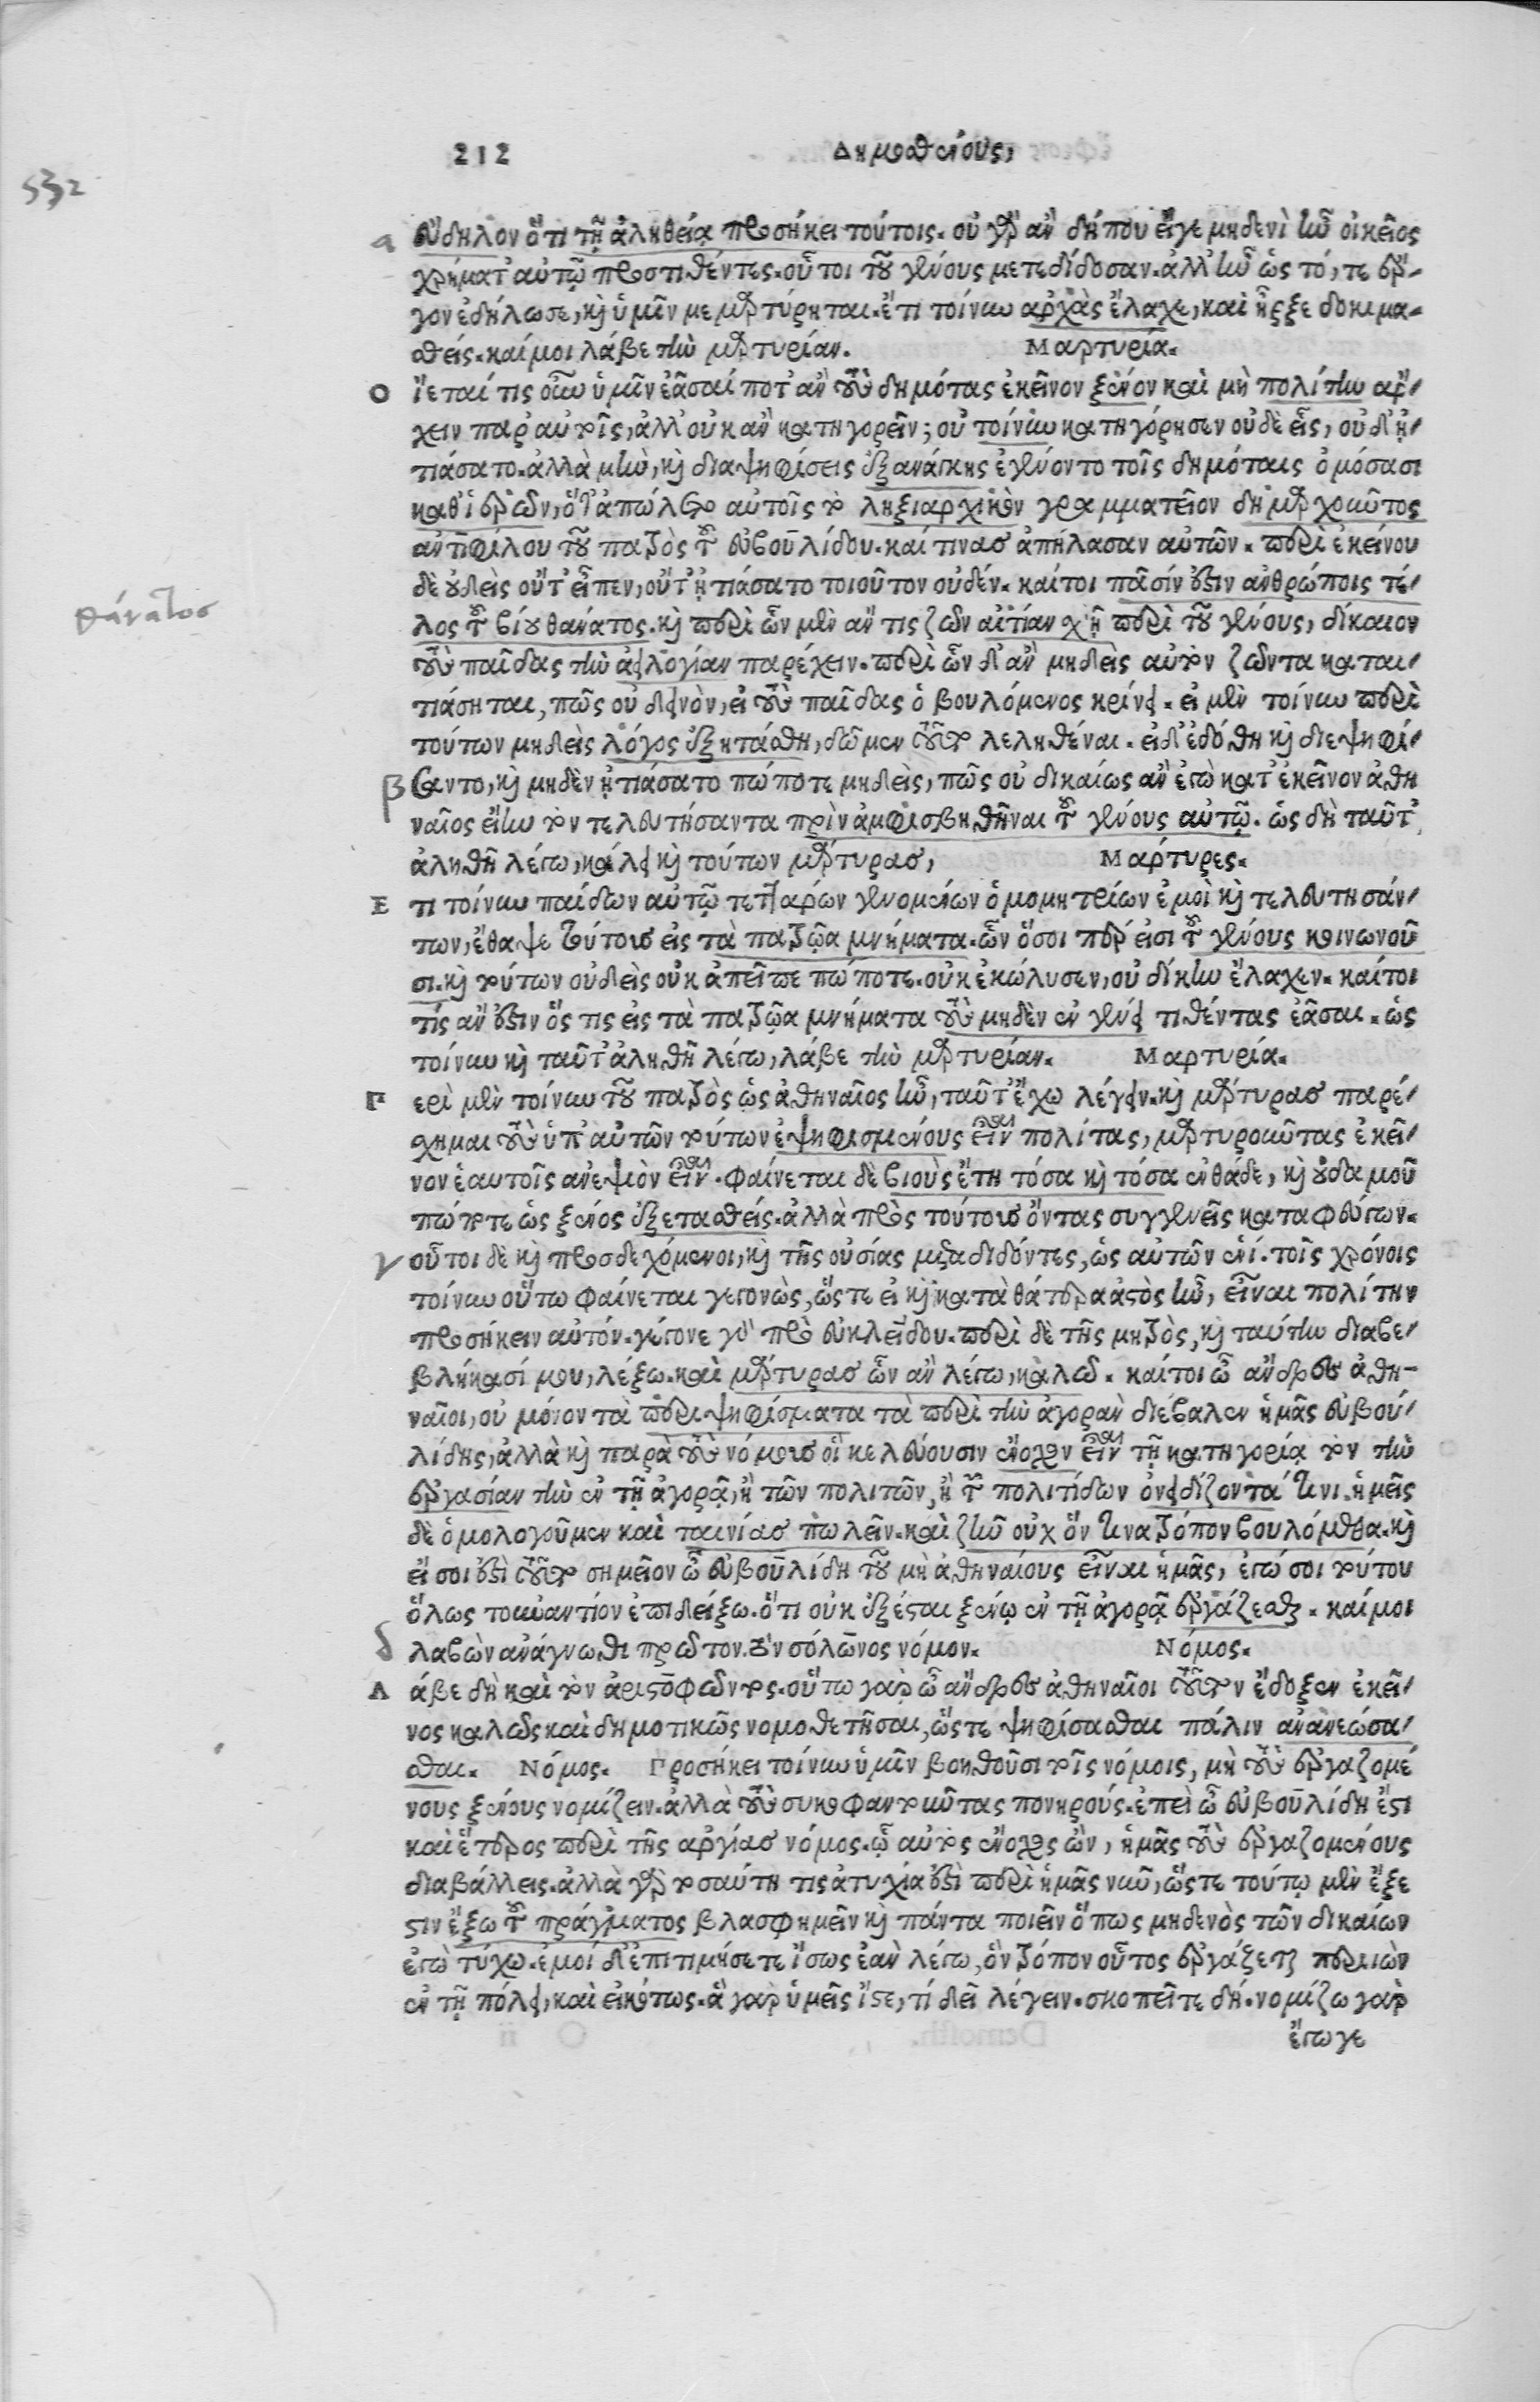 212 Δημοσθένους,
532
α εὔδηλον ὅτι τῇ ἀληθείᾳ προσήκει τούτοις. οὐ γὰρ ἂν δήπου εἴγε μηδενὶ ἦν οἰκεῖος
χρήματ' αὐτῷ προστιθέντες. οὗτοι τοῦ γένους μετεδίδοσαν. ἀλλ' ἦν ὡς τό, τε ἔρ-
γον ἐδήλωσε, καὶ ὑμῖν μεμαρτύρηται. ἔτι τοίνυν ἀρχὰς ἔλαχε, καὶ ἦρξε δοκιμα-
σθείς. καί μοι λάβε τὴν μαρτυρίαν. Μαρτυρία.
Ο ἴεταί τις οὖν ὑμῖν ἐᾶσαί ποτ' ἂν τοὺς δημότας ἐκεῖνον ξένον καὶ μὴ πολίτην ἄρ-
χειν παρ' αὐτοῖς, ἀλλ' οὐκ ἂν κατηγορεῖν; οὐ τοίνυν κατηγόρησεν οὐδὲ εἷς, οὐδ' ᾐ-
τιάσατο. ἀλλὰ μὴν, καὶ διαψηφίσεις ἐξανάγκης ἐγένοντο τοῖς δημόταις ὀμόσασι
καθ' ἱερῶν, ὅτ' ἀπώλετο αὐτοῖς τὸ ληξιαρχικὸν γραμματεῖον δημαρχοῦντος
ἀντιφίλου τοῦ πατρὸς τοῦ εὐβουλίδου. καί τινας ἀπήλασαν αὐτῶν. περὶ ἐκείνου
δὲ οὐδεὶς οὔτ' εἶπεν, οὔτ' ᾐτιάσατο τοιοῦτον οὐδέν. καίτοι πᾶσίν ἐστιν ἀνθρώποις τέ-
θάνατος
λος τοῦ βίου θάνατος. καὶ περὶ ὧν μὲν ἄν τις ζῶν αἰτίαν χῇ περὶ τοῦ γένους, δίκαιον
τοὺς παῖδας τὴν ἀειλογίαν παρέχειν. περὶ ὧν δ' ἂν μηδεὶς αὐτὸν ζῶντα καται-
τιάσηται, πῶς οὐ δεινὸν, εἰ τοὺς παῖδας ὁ βουλόμενος κρίνει. εἰ μὲν τοίνυν περὶ
τούτων μηδεὶς λόγος ἐξητάσθη, δῶμεν τοῦτο λεληθέναι. εἰ δ' ἐδόθη καὶ διεψηφί-
β σαντο, καὶ μηδὲν ᾐτιάσατο πώποτε μηδεὶς, πῶς οὐ δικαίως ἂν ἐγὼ κατ' ἐκεῖνον ἀθη
ναῖος εἴην τὸν τελευτήσαντα πρὶν ἀμφισβηθῆναι τοῦ γένους αὐτῷ. ὡς δὴ ταῦτ'
ἀληθῆ λέγω, κάλει καὶ τούτων μάρτυρας, Μάρτυρες.
Ε τι τοίνυν παίδων αὐτῷ τεττάρων γενομένων ὁμομητρίων ἐμοὶ καὶ τελευτησάν-
των, ἔθαψε τούτους εἰς τὰ πατρῷα μνήματα. ὧν ὅσοι πέρ εἰσι τοῦ γένους κοινωνοῦ
σι. καὶ τούτων οὐδεὶς οὐκ ἀπεῖπε πώποτε. οὐκ ἐκώλυσεν, οὐ δίκην ἔλαχεν. καίτοι
τίς ἂν ἐστιν ὅς τις εἰς τὰ πατρῷα μνήματα τοὺς μηδὲν ἐν γένει τιθέντας ἐᾶσαι. ὡς
τοίνυν καὶ ταῦτ' ἀληθῆ λέγω, λάβε τὴν μαρτυρίαν. Μαρτυρία.
Π ερὶ μὲν τοίνυν τοῦ πατρὸς ὡς ἀθηναῖος ἦν, ταῦτ' ἔχω λέγειν. καὶ μάρτυρας παρέ-
σχημαι τοὺς ὑπ' αὐτῶν τούτων ἐψηφισμένους εἶναι πολίτας, μαρτυροῦντας ἐκεῖ-
νον ἑαυτοῖς ἀνεψιὸν εἶναι. φαίνεται δὲ βιοὺς ἔτη τόσα καὶ τόσα ἐνθάδε, καὶ οὐδαμοῦ
πώποτε ὡς ξένος ἐξετασθείς. ἀλλὰ πρὸς τούτους ὄντας συγγενεῖς καταφεύγων.
γ οὗτοι δὲ καὶ προσδεχόμενοι, καὶ τῆς οὐσίας μεταδιδόντες, ὡς αὐτῶν ἑνί. τοῖς χρόνοις
τοίνυν οὕτω φαίνεται γεγονὼς, ὥστε εἰ καὶ κατὰ θάτερα ἀστὸς ἦν, εἶναι πολίτην
προσήκειν αὐτόν. γέγονε γὰρ πρὸ εὐκλείδου. περὶ δὲ τῆς μητρὸς, καὶ ταύτην διαβε-
βλήκασί μου, λέξω. καὶ μάρτυρας ὧν ἂν λέγω, καλῶ. καίτοι ὦ ἄνδρες ἀθη-
ναῖοι, οὐ μόνον τὰ περιψηφίσματα τὰ περὶ τὴν ἀγορὰν διέβαλεν ἡμᾶς εὐβου-
λίδης, ἀλλὰ καὶ παρὰ τοὺς νόμους οἳ κελεύουσιν ἔνοχον εἶναι τῇ κατηγορίᾳ τὸν τὴν
ἐργασίαν τὴν ἐν τῇ ἀγορᾷ, ἢ τῶν πολιτῶν, ἢ τῶν πολιτίδων ὀνειδίζοντά τινι. ἡμεῖς
δὲ ὁμολογοῦμεν καὶ ταινίας πωλεῖν. καὶ ζῆν οὐχ ὅν τινα τρόπον βουλόμεθα. καὶ
εἴ σοι ἐστὶ τοῦτο σημεῖον ὦ εὐβουλίδη τοῦ μὴ ἀθηναίους εἶναι ἡμᾶς, ἐγώ σοι τούτου
ὅλως τοὐναντίον ἐπιδείξω. ὅτι οὐκ ἐξέσται ξένῳ ἐν τῇ ἀγορᾷ ἐργάζεσθαι. καί μοι
δ λαβὼν ἀνάγνωθι πρῶτον τὸν σόλωνος νόμον. Νόμος.
Λ άβε δὴ καὶ τὸν ἀριστοφῶντος. οὕτω γὰρ ὦ ἄνδρες ἀθηναῖοι τοῦτον ἔδοξεν ἐκεῖ-
νος καλῶς καὶ δημοτικῶς νομοθετῆσαι, ὥστε ψηφίσασθαι πάλιν ἀνανεώσα-
σθαι. Νόμος. Προσήκει τοίνυν ὑμῖν βοηθοῦσι τοῖς νόμοις, μὴ τοὺς ἐργαζομέ
νους ξένους νομίζειν. ἀλλὰ τοὺς συκοφαντοῦντας πονηρούς. ἐπεὶ ὦ εὐβουλίδη ἔστι
καὶ ἕτερος περὶ τῆς ἀργίας νόμος. ᾧ αὐτὸς ἔνοχος ὢν, ἡμᾶς τοὺς ἐργαζομένους
διαβάλλεις. ἀλλὰ γὰρ τοσαύτη τις ἀτυχία ἐστὶ περὶ ἡμᾶς νῦν, ὥστε τούτῳ μὲν ἔξε
στιν ἔξω τοῦ πράγματος βλασφημεῖν καὶ πάντα ποιεῖν ὅπως μηδενὸς τῶν δικαίων
ἐγὼ τύχω. ἐμοί δ' ἐπιτιμήσετε ἴσως ἐὰν λέγω, ὃν τρόπον οὗτος ἐργάζεται περιιὼν
ἐν τῇ πόλει, καὶ εἰκότως. ἃ γὰρ ὑμεῖς ἴστε, τί δεῖ λέγειν. σκοπεῖτε δή. νομίζω γὰρ
ἔγωγε